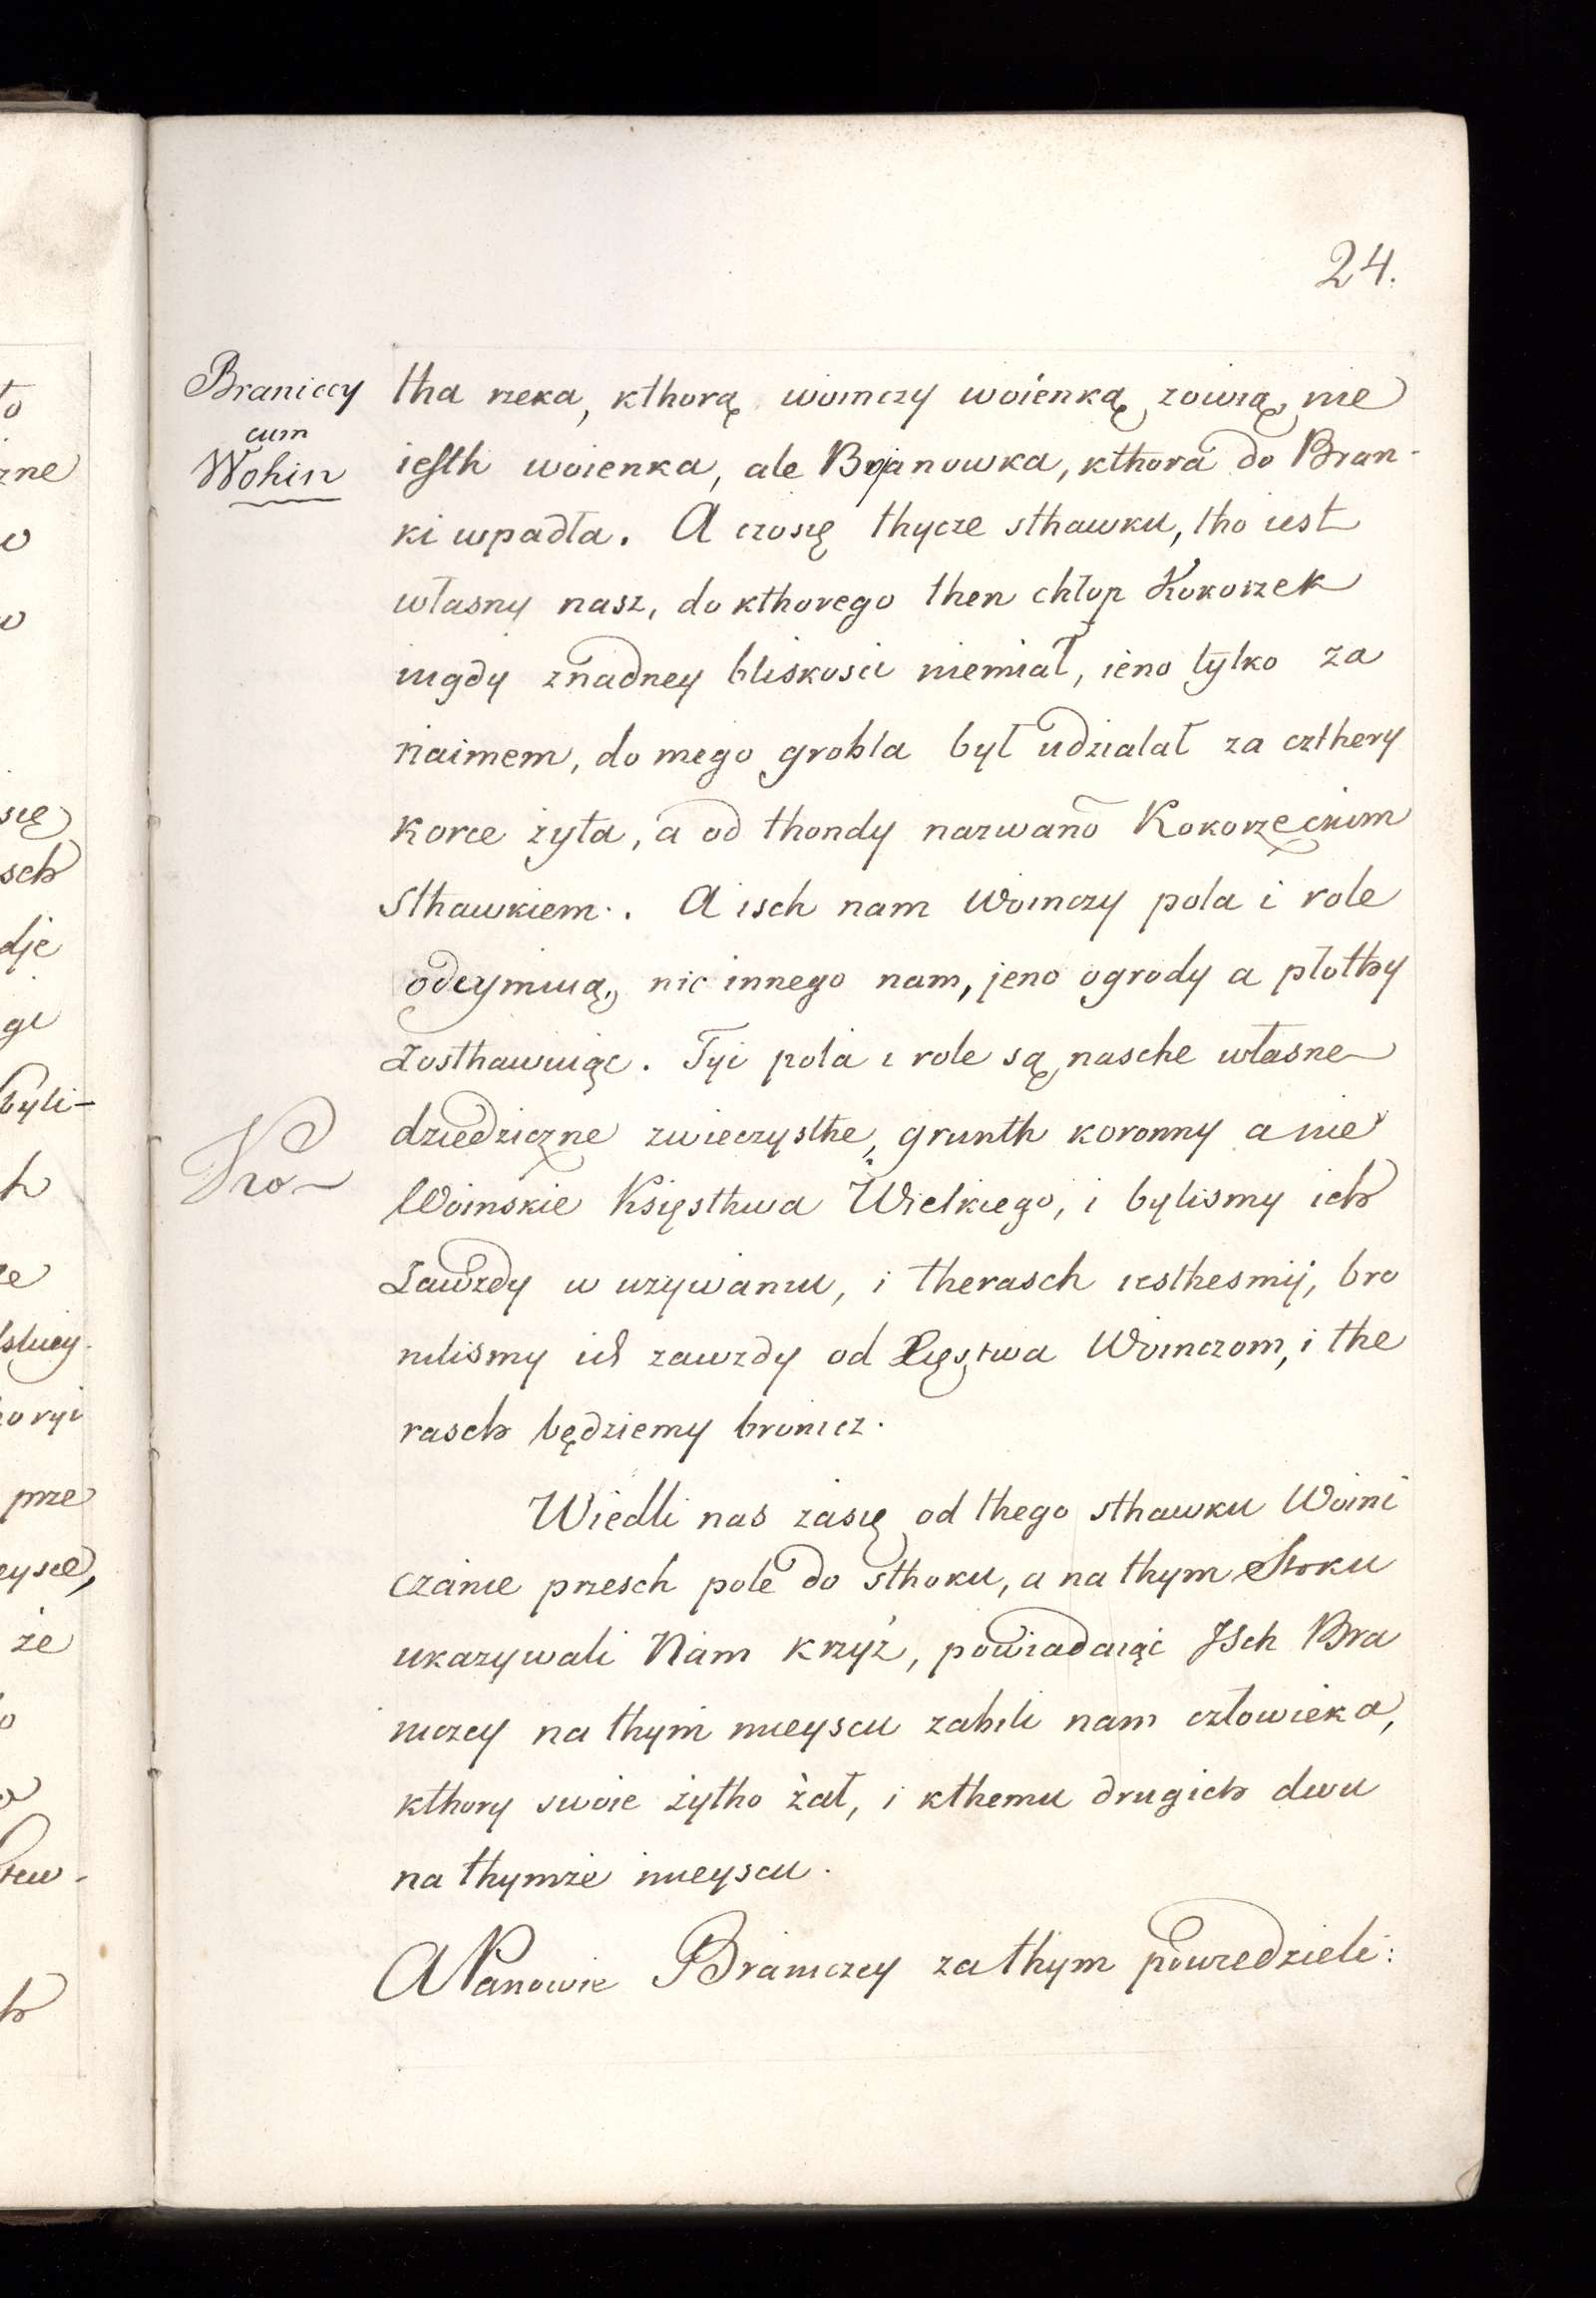 24.
Braniccy
cum
Wohin
tha rzeka, kthorą woinczy woienką zowią, nie
iesth woienka, ale Bojanowka, kthora do Bran-
ki wpadła. A czosię thycze sthawku, tho iest
własny nasz, do kthorego then chłop Kokoszek
nigdy znadney bliskosci niemiał, ieno tylko za
naimem, do mego grobla był udzialał za czthery
korce zyta, a od thondy nazwano Kokorzeckim
Sthawkiem. A isch nam Woinczy pola i role
odeymuią, nic innego nam, jeno ogrody a płothy
Zosthawuiąc. Tyi pola i role są nasche własne
dziedziczne zwieczysthe, grunth koronny a nie
Woinskie Księsthwa Wielkiego, i bylismy ich
Zawzdy w uzywaniu, i therasch iesthesmij, bro
nilismy ich zawzdy od Xięstwa Woinczom, i the
rasch będziemy bronicz.
Wiedli nas zasię od thego sthawku Woini
czanie przesch pole do sthoku, a na thym Stoku
ukazywali Nam krzyż, powiadaiąc Jsch Bra
niczcy na thym mieyscu zabili nam człowieka,
kthory swoie żytho żał, i kthemu drugich dwu
na thymże mieyscu.
A Panowie Braniczcy za thym powiedzieli: